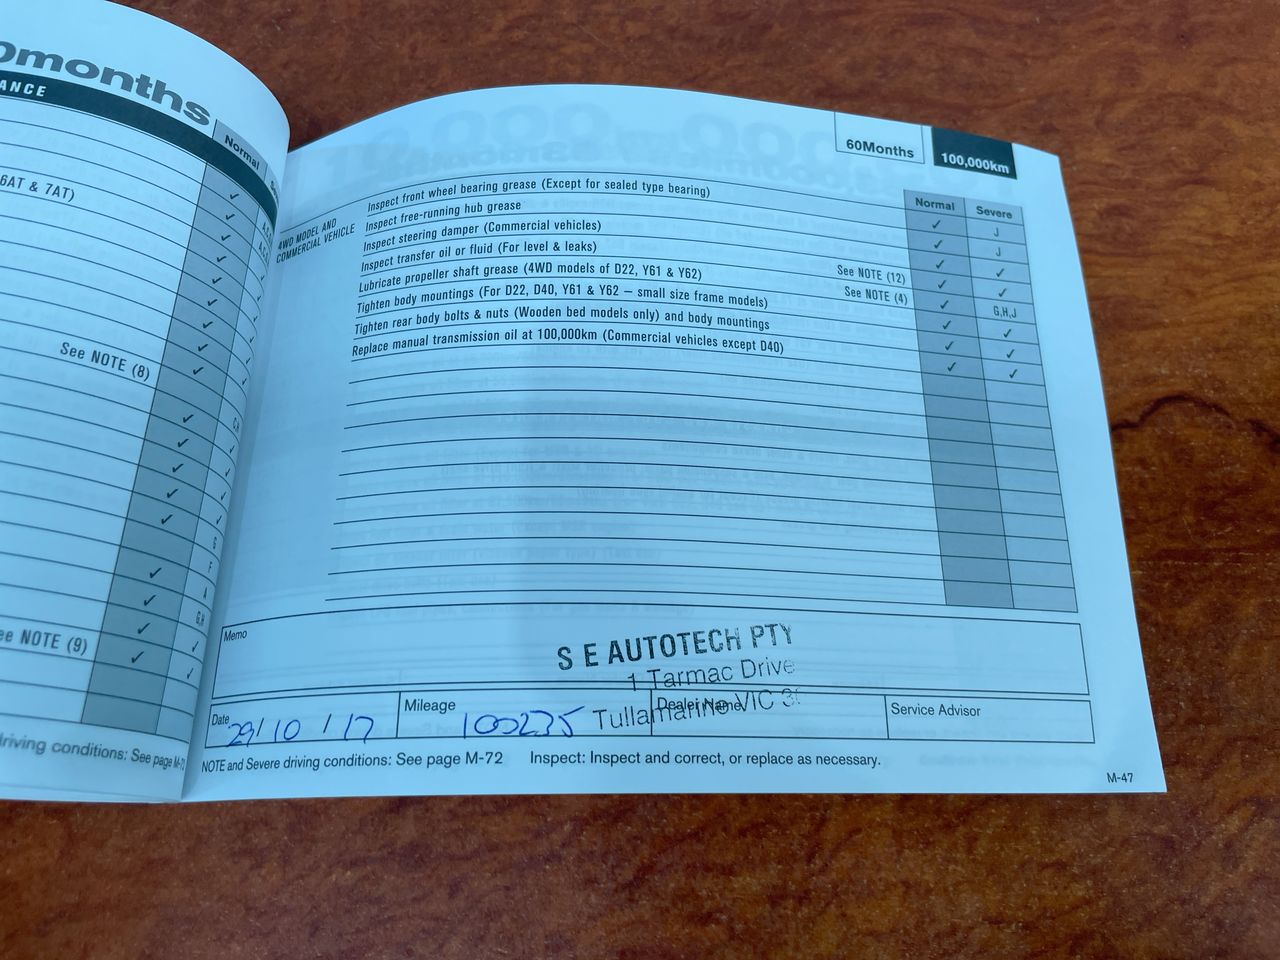 0months
ANCE
Normal
6AT & 7AT)
See NOTE (8)
ee NOTE (9)
riving conditions: See page M-72
60Months
100,000km
Normal
Severe
4WD MODEL AND
COMMERCIAL VEHICLE
Inspect front wheel bearing grease (Except for sealed type bearing) ✓ J
Inspect free-running hub grease ✓ J
Inspect steering damper (Commercial vehicles) ✓ ✓
Inspect transfer oil or fluid (For level & leaks) See NOTE (12) ✓ ✓
Lubricate propeller shaft grease (4WD models of D22, Y61 & Y62) See NOTE (4) ✓ G,H,J
Tighten body mountings (For D22, D40, Y61 & Y62 – small size frame models) ✓ ✓
Tighten rear body bolts & nuts (Wooden bed models only) and body mountings ✓ ✓
Replace manual transmission oil at 100,000km (Commercial vehicles except D40) ✓ ✓
Memo
S E AUTOTECH PTY
1 Tarmac Drive
Tullamarine VIC 3
Date
29/10/17
Mileage
100235
Dealer Name
Service Advisor
NOTE and Severe driving conditions: See page M-72 Inspect: Inspect and correct, or replace as necessary.
M-47